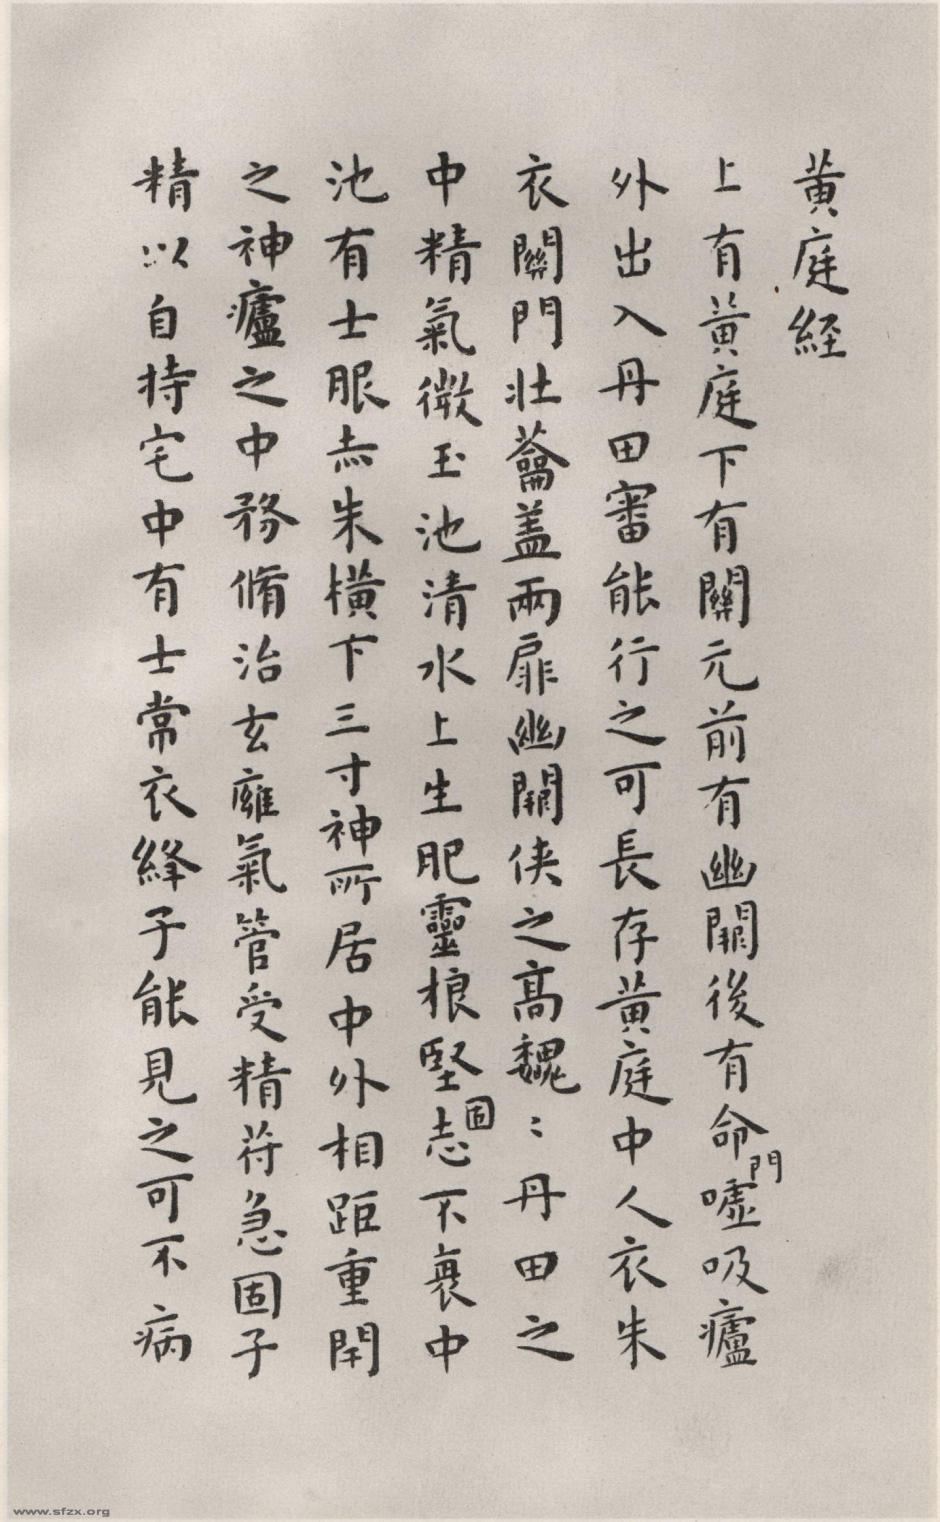 黃庭経
上有黃庭下有關元前有幽闕後有命門噓吸廬
外出入丹田審能行之可長存黃庭中人衣朱
衣關門壯蘥盖兩扉幽闕侠之高魏〻丹田之
中精氣微玉池清水上生肥靈根堅固志不衰中
池有士服赤朱橫下三寸神所居中外相距重閉
之神廬之中務脩治玄廱氣管受精符急固子
精以自持宅中有士常衣絳子能見之可不病
www.sfzx.org